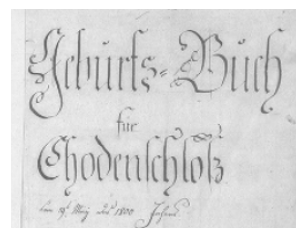 Geburts=Buch
für
Chodenschloß
den 19t. May des 1800 Jahres